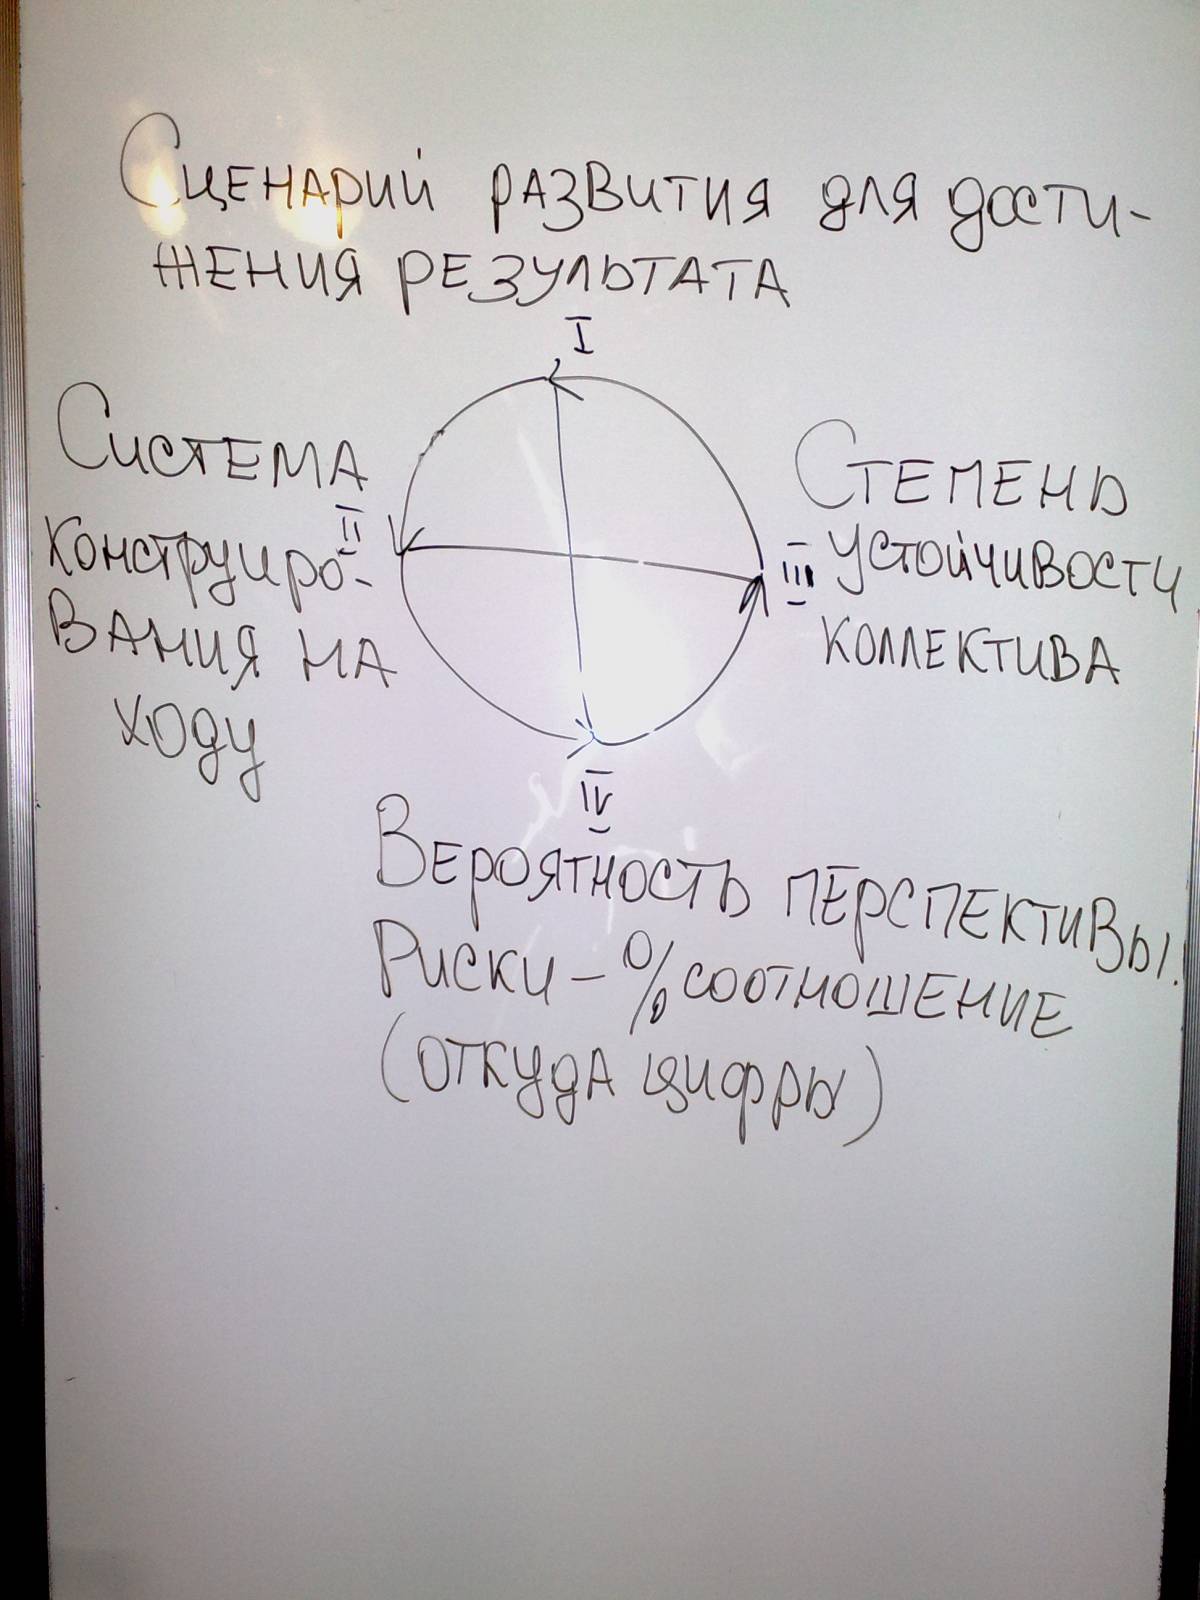 Сценарий развития для дости-
жения результата
I
Система
II
конструиро-
вания на
ходу
Степень
III устойчивости
коллектива
IV
Вероятность перспективы.
Риски - % соотношение
(откуда цифры)